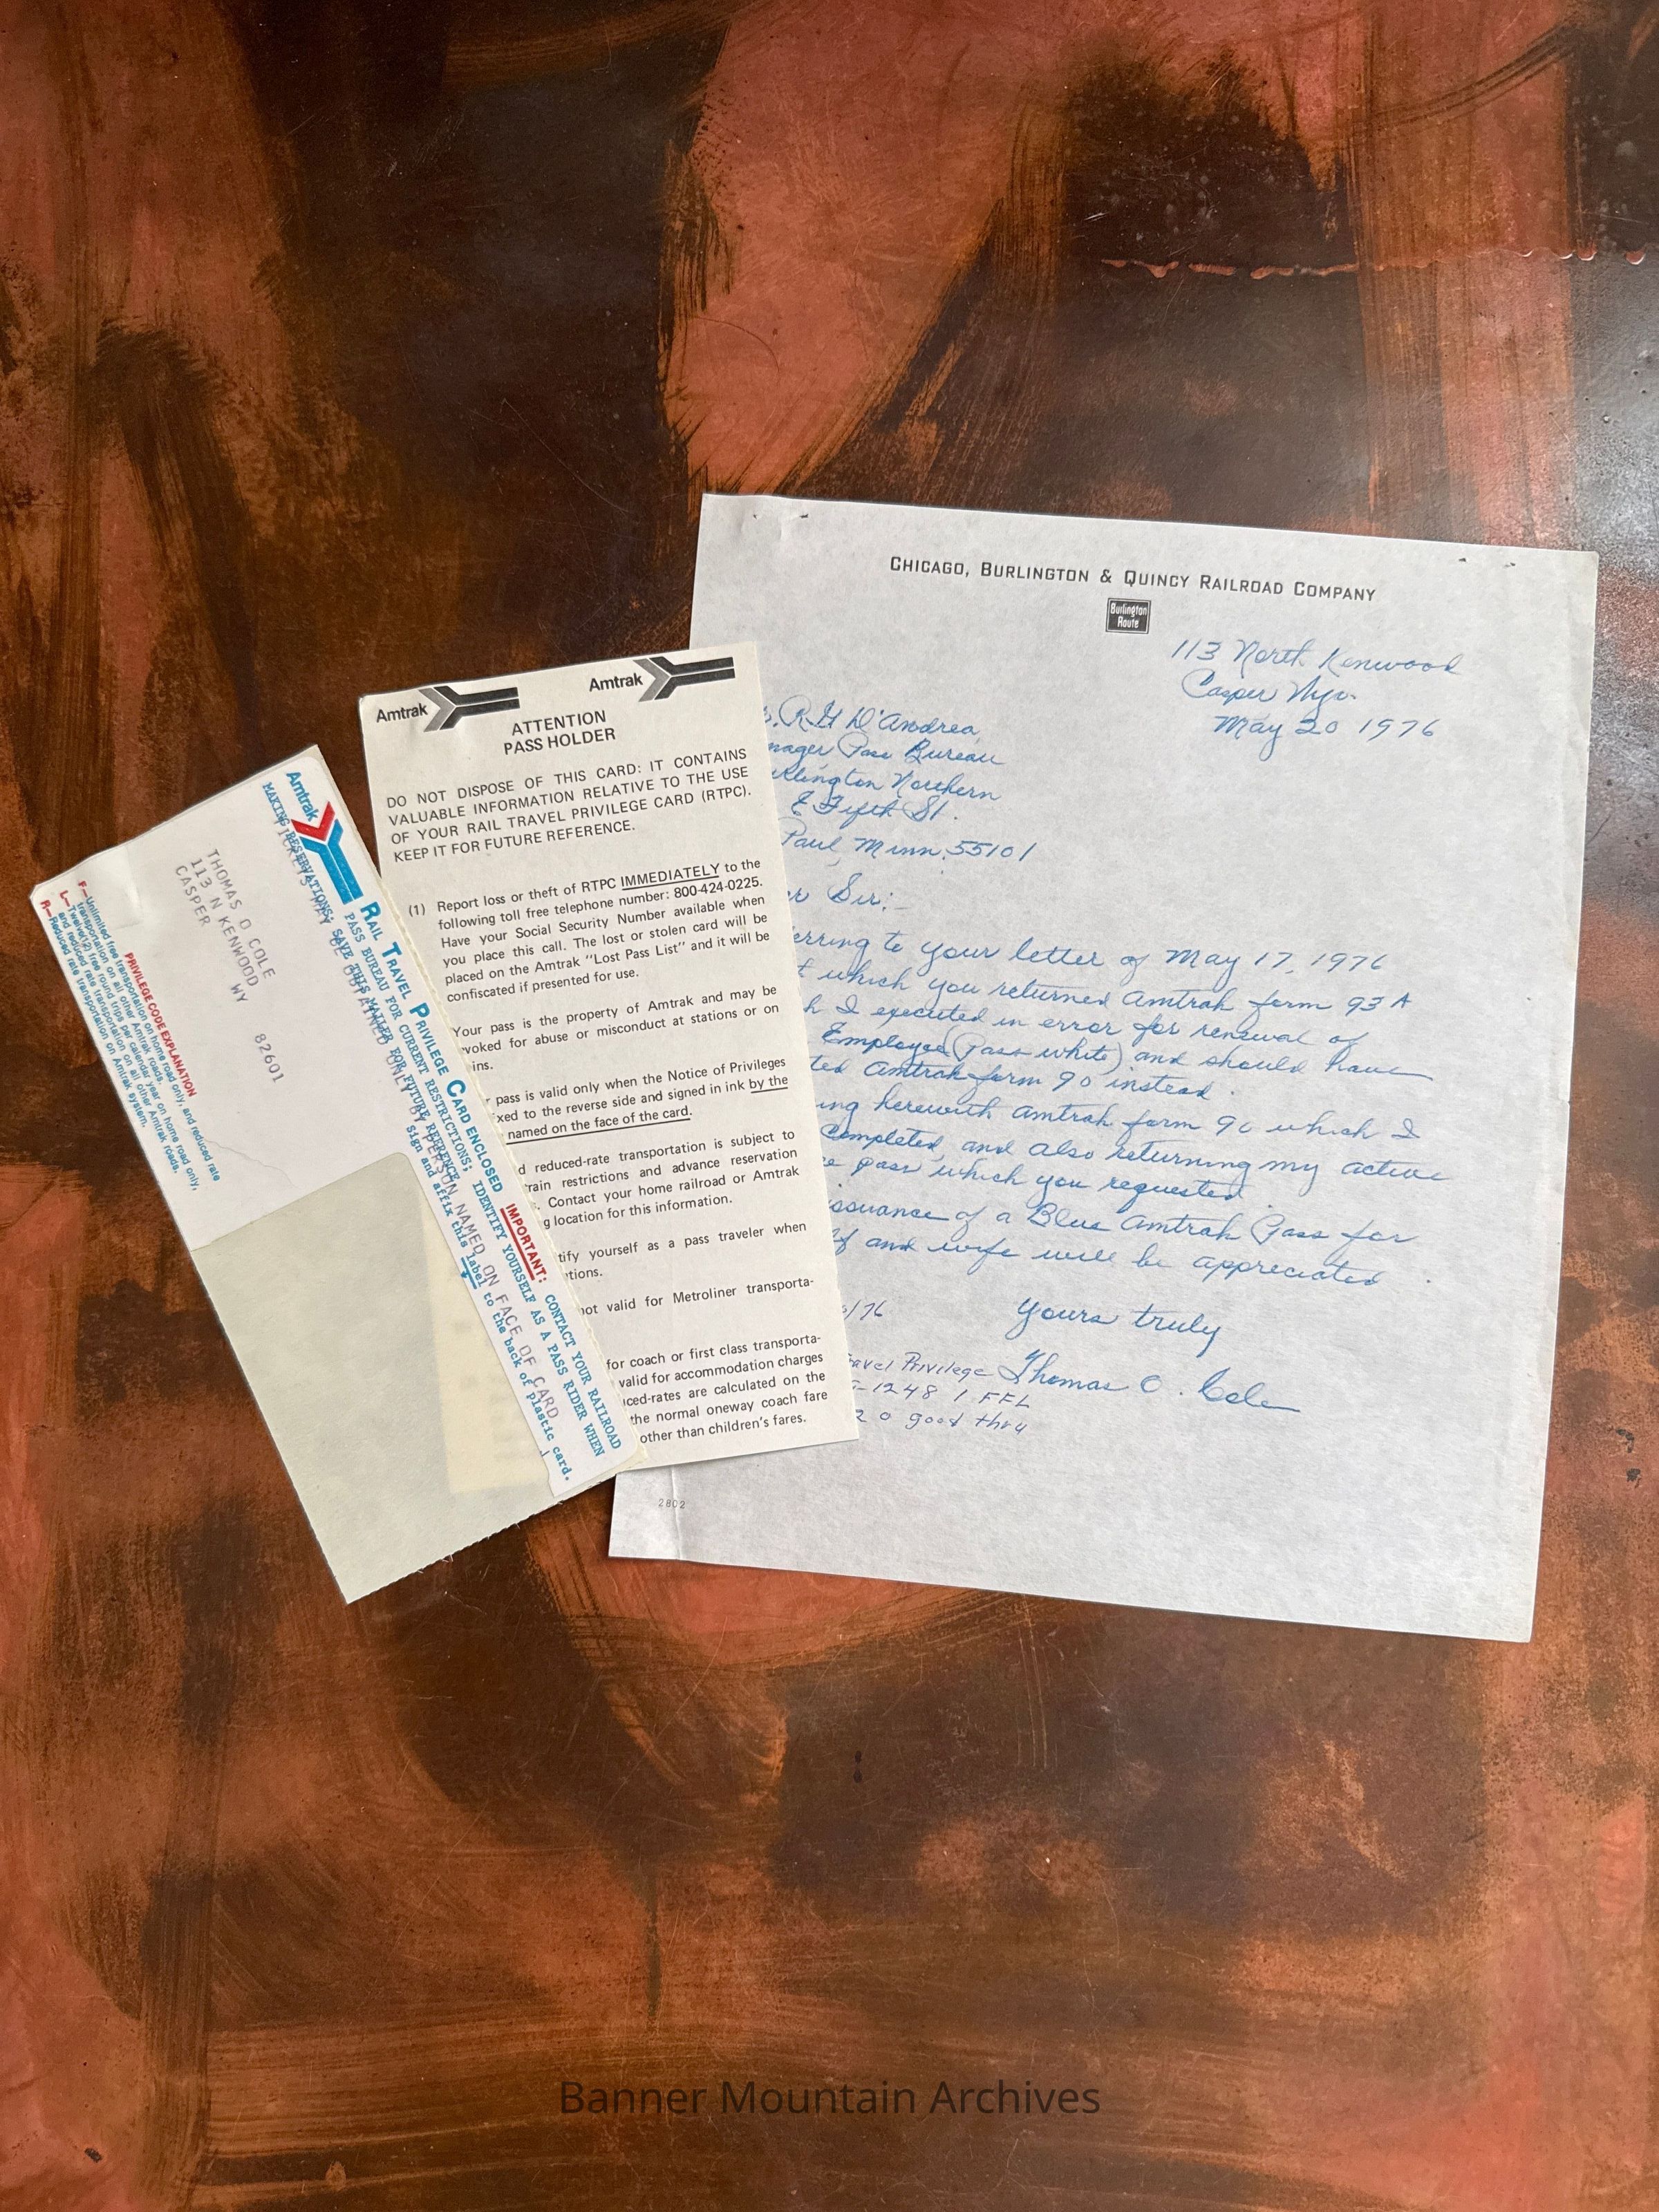 CHICAGO, BURLINGTON & QUINCY RAILROAD COMPANY
Burlington
Route
113 North Kenwood
Casper Wyo.
May 20 1976
D'Andrea,
nager Pass Bureau
rlington Northern
E Fifth St.
Paul, Minn. 55101
Sir:-
erring to your letter of May 17, 1976
t which you returned Amtrak form 93 A
h I executed in error for renewal of
Employee (Pass white) and should have
ted Amtrak form 90 instead.
ing herewith Amtrak form 90 which I
completed, and also returning my active
e pass which you requested
issuance of a Blue Amtrak Pass for
lf and wife will be appreciated.
/76
Yours truly
Thomas O. Cole
avel Privilege
-1248 1 FFL
2 0 good thru
2802
Amtrak
Amtrak
ATTENTION
PASS HOLDER
DO NOT DISPOSE OF THIS CARD: IT CONTAINS
VALUABLE INFORMATION RELATIVE TO THE USE
OF YOUR RAIL TRAVEL PRIVILEGE CARD (RTPC).
KEEP IT FOR FUTURE REFERENCE.
(1) Report loss or theft of RTPC IMMEDIATELY to the
following toll free telephone number: 800-424-0225.
Have your Social Security Number available when
you place this call. The lost or stolen card will be
placed on the Amtrak "Lost Pass List" and it will be
confiscated if presented for use.
Your pass is the property of Amtrak and may be
voked for abuse or misconduct at stations or on
ins.
r pass is valid only when the Notice of Privileges
xed to the reverse side and signed in ink by the
named on the face of the card.
d reduced-rate transportation is subject to
rain restrictions and advance reservation
. Contact your home railroad or Amtrak
g location for this information.
tify yourself as a pass traveler when
tions.
not valid for Metroliner transporta-
for coach or first class transporta-
valid for accommodation charges
ced-rates are calculated on the
the normal oneway coach fare
other than children's fares.
Amtrak
RAIL TRAVEL PRIVILEGE CARD ENCLOSED
IMPORTANT: CONTACT YOUR RAILROAD
PASS BUREAU FOR CURRENT RESTRICTIONS; IDENTIFY YOURSELF AS A PASS RIDER WHEN
MAKING RESERVATIONS; SAVE THIS MAILER FOR FUTURE REFERENCE
Sign and affix this label to the back of plastic card.
TICKETS MAY BE OBTAINED ONLY BY PERSON NAMED ON FACE OF CARD
THOMAS O COLE
113 N KENWOOD
CASPER WY 82601
PRIVILEGE CODE EXPLANATION
F—Unlimited free transportation on home road only, and reduced rate
transportation on all other Amtrak roads.
L—Twelve(12) free round trips per calendar year on home road only,
and reduced rate transportation on all other Amtrak roads.
R—Reduced rate transportation on Amtrak system.
Banner Mountain Archives